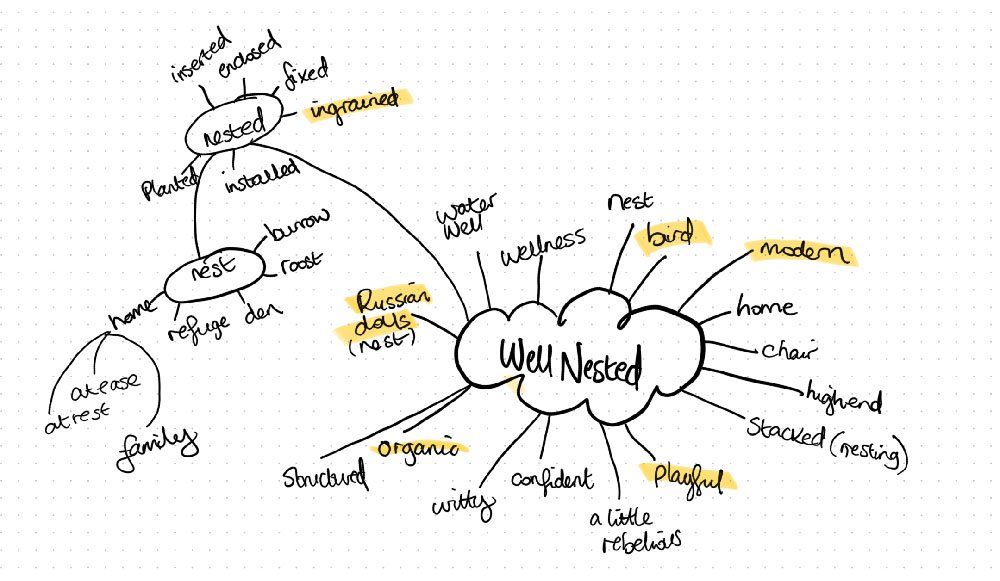 inserted
enclosed
fixed
ingrained
nested
Planted
installed
burrow
nest
roost
home
refuge
den
at ease
at rest
family
Water
Well
wellness
nest
bird
modern
Russian
dolls
(nest)
home
Well Nested
chair
highend
Stacked (nesting)
Structured
organic
witty
confident
playful
a little
rebelious